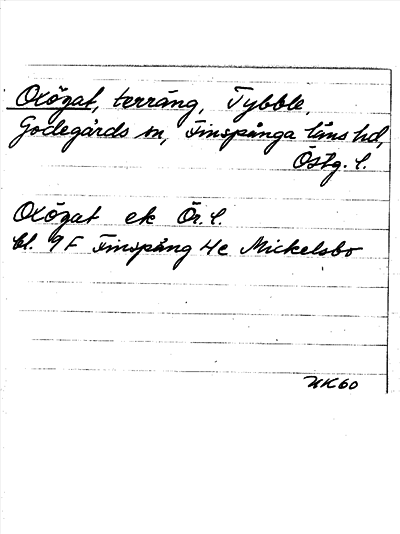 Oxögat, terräng, Tybble,
Godegårds sn, Finspånga läns hd,
Östg. l.
Oxögat ek Ör. l.
bl. 9F Finspång 4e Mickelsbo
HK60